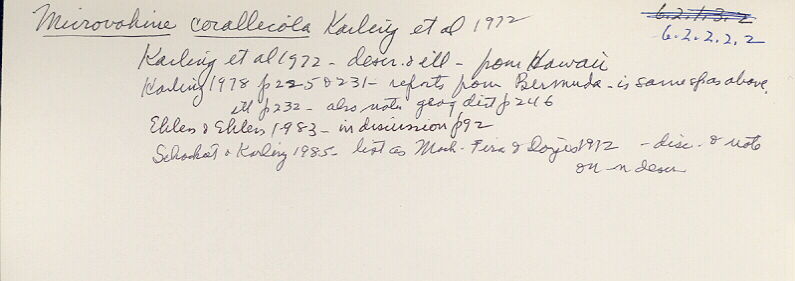 Microvahine corallicola Karling et al 1972
6.2.1.3.2
6.2.2.2.2
Karling et al 1972 - descr. & ill - from Hawaii
Karling 1978 p225 & 231 - reports from Bermuda - is same sp as above,
ill p232 - also note geog dist p246
Ehlers & Ehlers 1983 - in discussion p92
Schockaert & Karling 1985 - list as Mack-Fira & 1972 - disc. & note
on descr